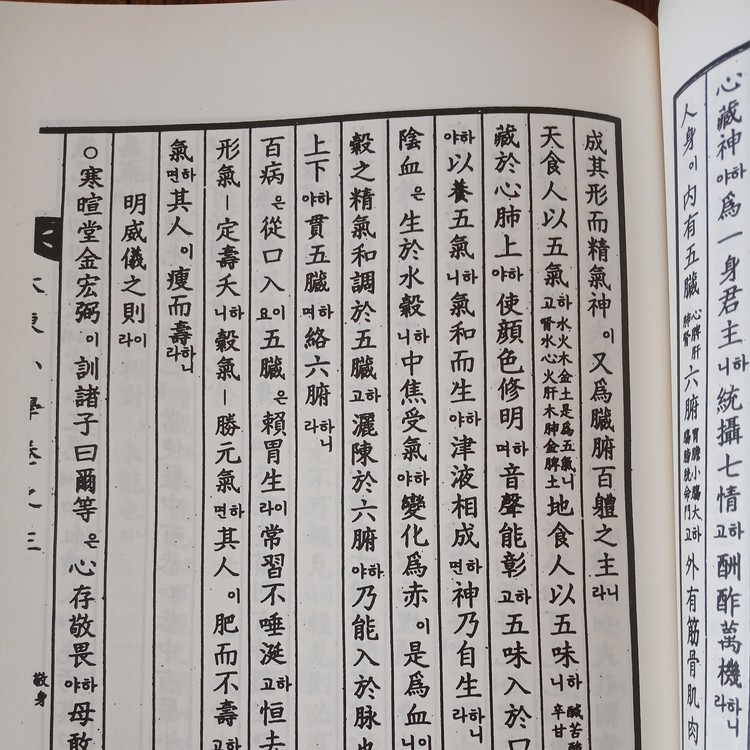 心藏神하야爲一身君主하니統攝七情하고酬酢萬機하니라
人身이內有五臟心脾肝肺腎六腑胃膽小腸大腸膀胱命門하고外有筋骨肌肉
成其形而精氣神이又爲臟腑百體之主니라
天食人以五氣하고水火木金土是爲五氣니腎水心火肝木肺金脾土地食人以五味하니鹹苦酸辛甘
藏於心肺上하야使顔色修明하며音聲能彰하고五味入於口
하야以養五氣하니氣和而生하야津液相成하면神乃自生하니라
陰血은生於水穀하니中焦受氣하야變化爲赤이是爲血이니
穀之精氣和調於五臟하고灑陳於六腑하야乃能入於脉也
上下하야貫五臟하며絡六腑하니라
百病은從口入이요五臟은賴胃生이라常習不唾涎하고恒去
形氣ㅣ定壽夭하니穀氣ㅣ勝元氣하면其人이肥而不壽하고
氣하면其人이瘦而壽하니라
明威儀之則이라
○寒暄堂金宏弼이訓諸子曰爾等은心存敬畏하야母敢
東小學卷之三
敬身